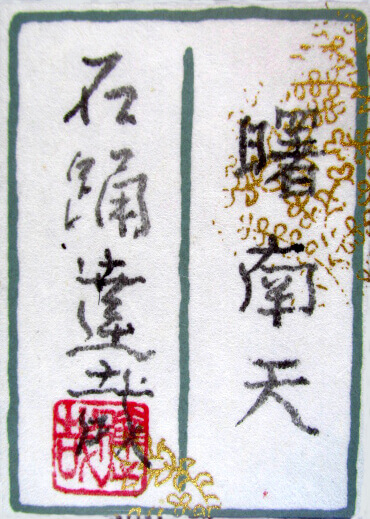 曙南天
石踊達哉